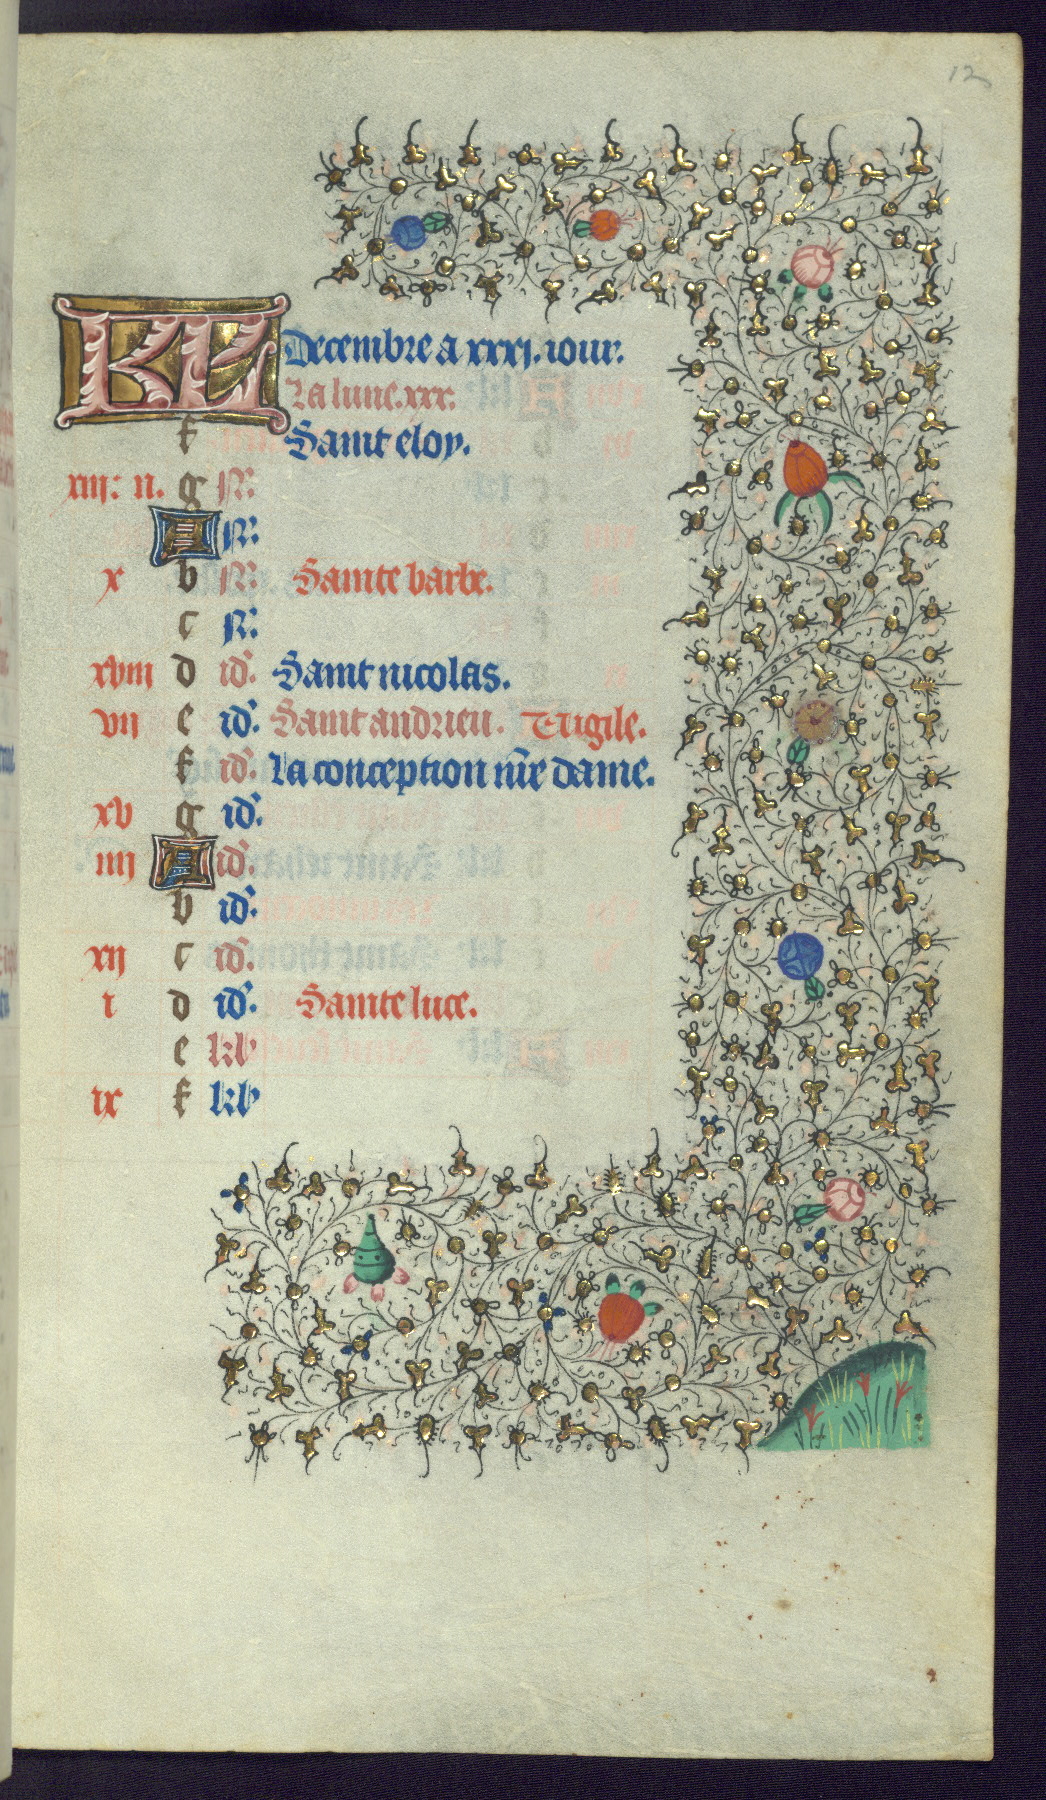 12
KL Decembre a xxxj. iour.
La lune. xxx.
f Saint eloy.
xiij: n. g N:
A N:
x b N: Sainte barbe.
c N:
xviij d id. Saint nicolas.
vij e id. Saint andrieu. Vigile.
f id. La conception nr̄e dame.
xv g id.
iiij A id.
b id.
xij c id.
i d id. Sainte luce.
e kl
ix f kl